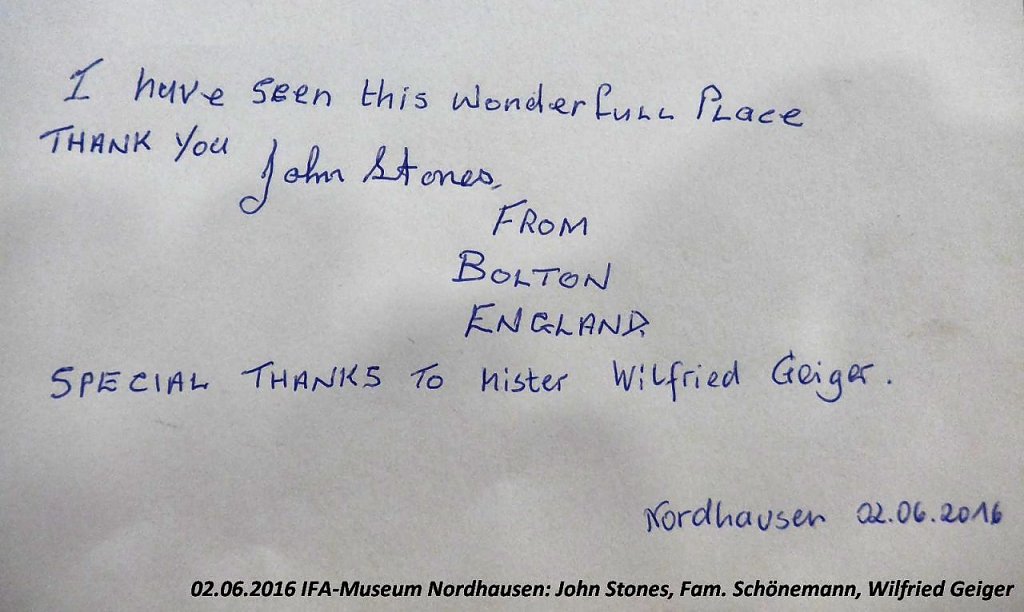 I have seen this wonderfull Place
THANK YOU
John Stones,
FROM
BOLTON
ENGLAND.
SPECIAL THANKS TO Mister Wilfried Geiger.
Nordhausen 02.06.2016
02.06.2016 IFA-Museum Nordhausen: John Stones, Fam. Schönemann, Wilfried Geiger